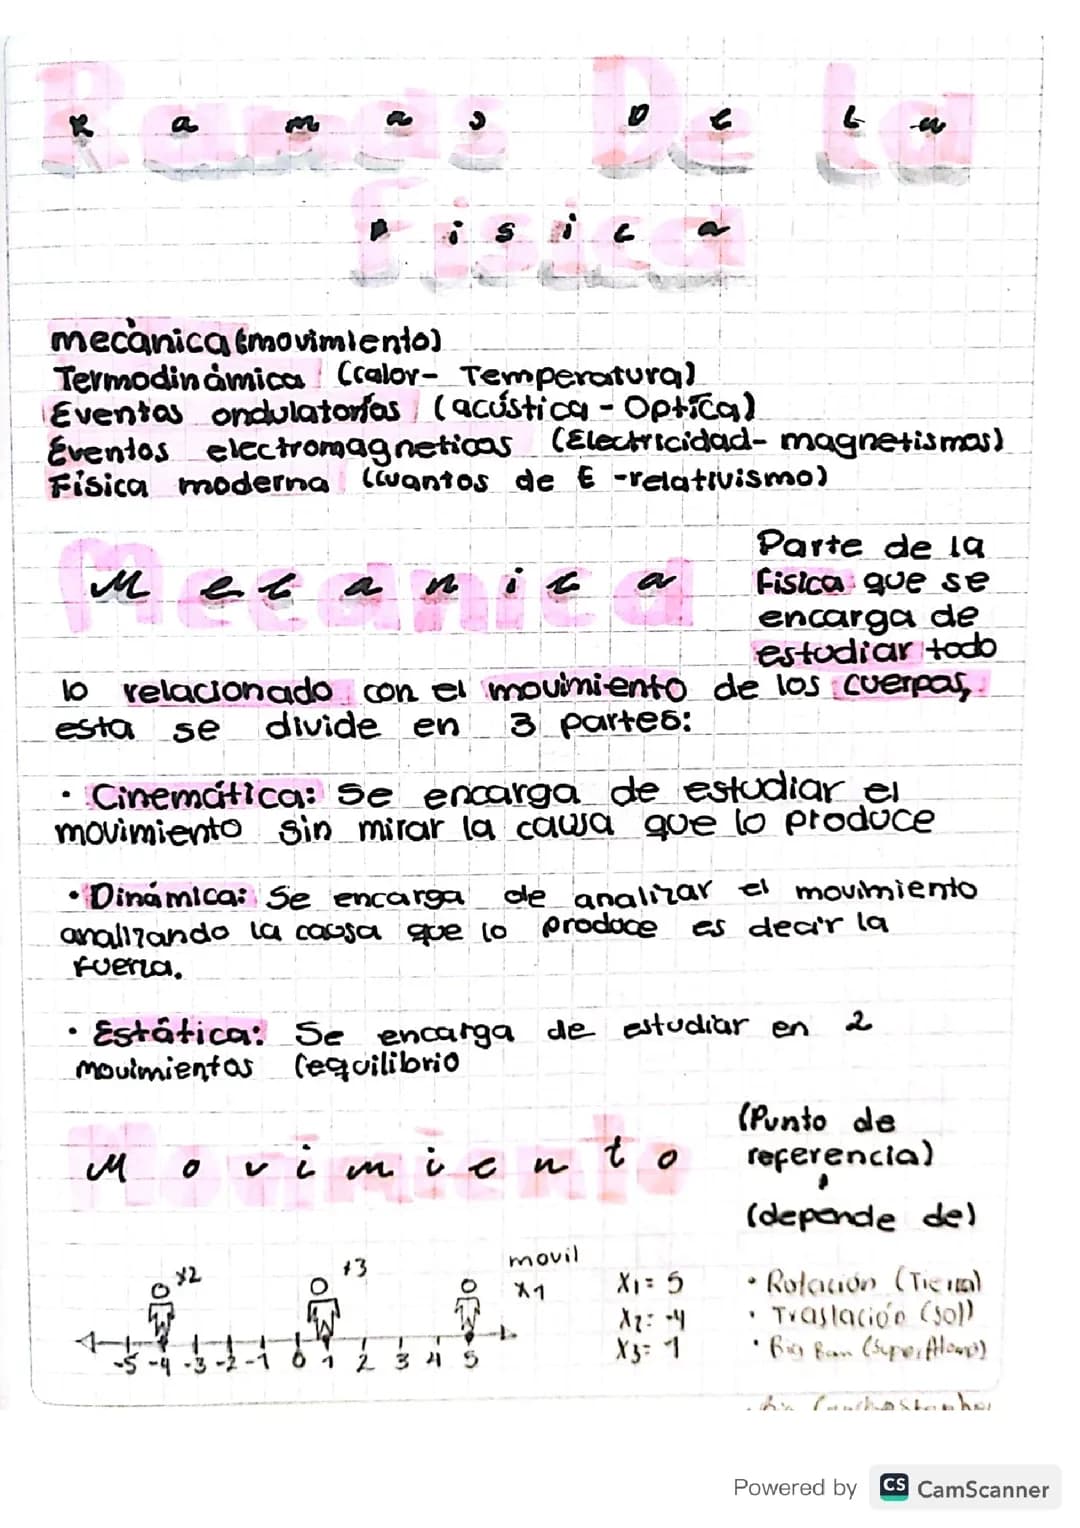 Ramas De la
Fisica
mecànica (movimiento)
Termodinàmica (calor- Temperatura)
Eventos ondulatorios (acústica - Optica)
Eventos electromagneticos (Electricidad- magnetismos)
Física moderna (cuantos de E -relativismo)
Mecanica
Parte de la
Fisica que se
encarga de
estudiar todo
lo relacionado con el movimiento de los cuerpos,
esta se divide en 3 partes:
• Cinemática: Se encarga de estudiar el
movimiento sin mirar la causa que lo produce
• Dinámica: Se encarga de analizar el movimiento
analizando la causa que lo produce es decir la
fuerza.
• Estática: Se encarga de estudiar en 2
movimientos (equilibrio
Movimiento
(Punto de
referencia)
(depende de)
x2
x3
movil
x1
-5 -4 -3 -2 -1 0 1 2 3 4 5
X1= 5
X2= -4
X3= 1
• Rotación (Tierra)
• Traslación (sol)
• Big Ban (Super Atomo)
Powered by CS CamScanner